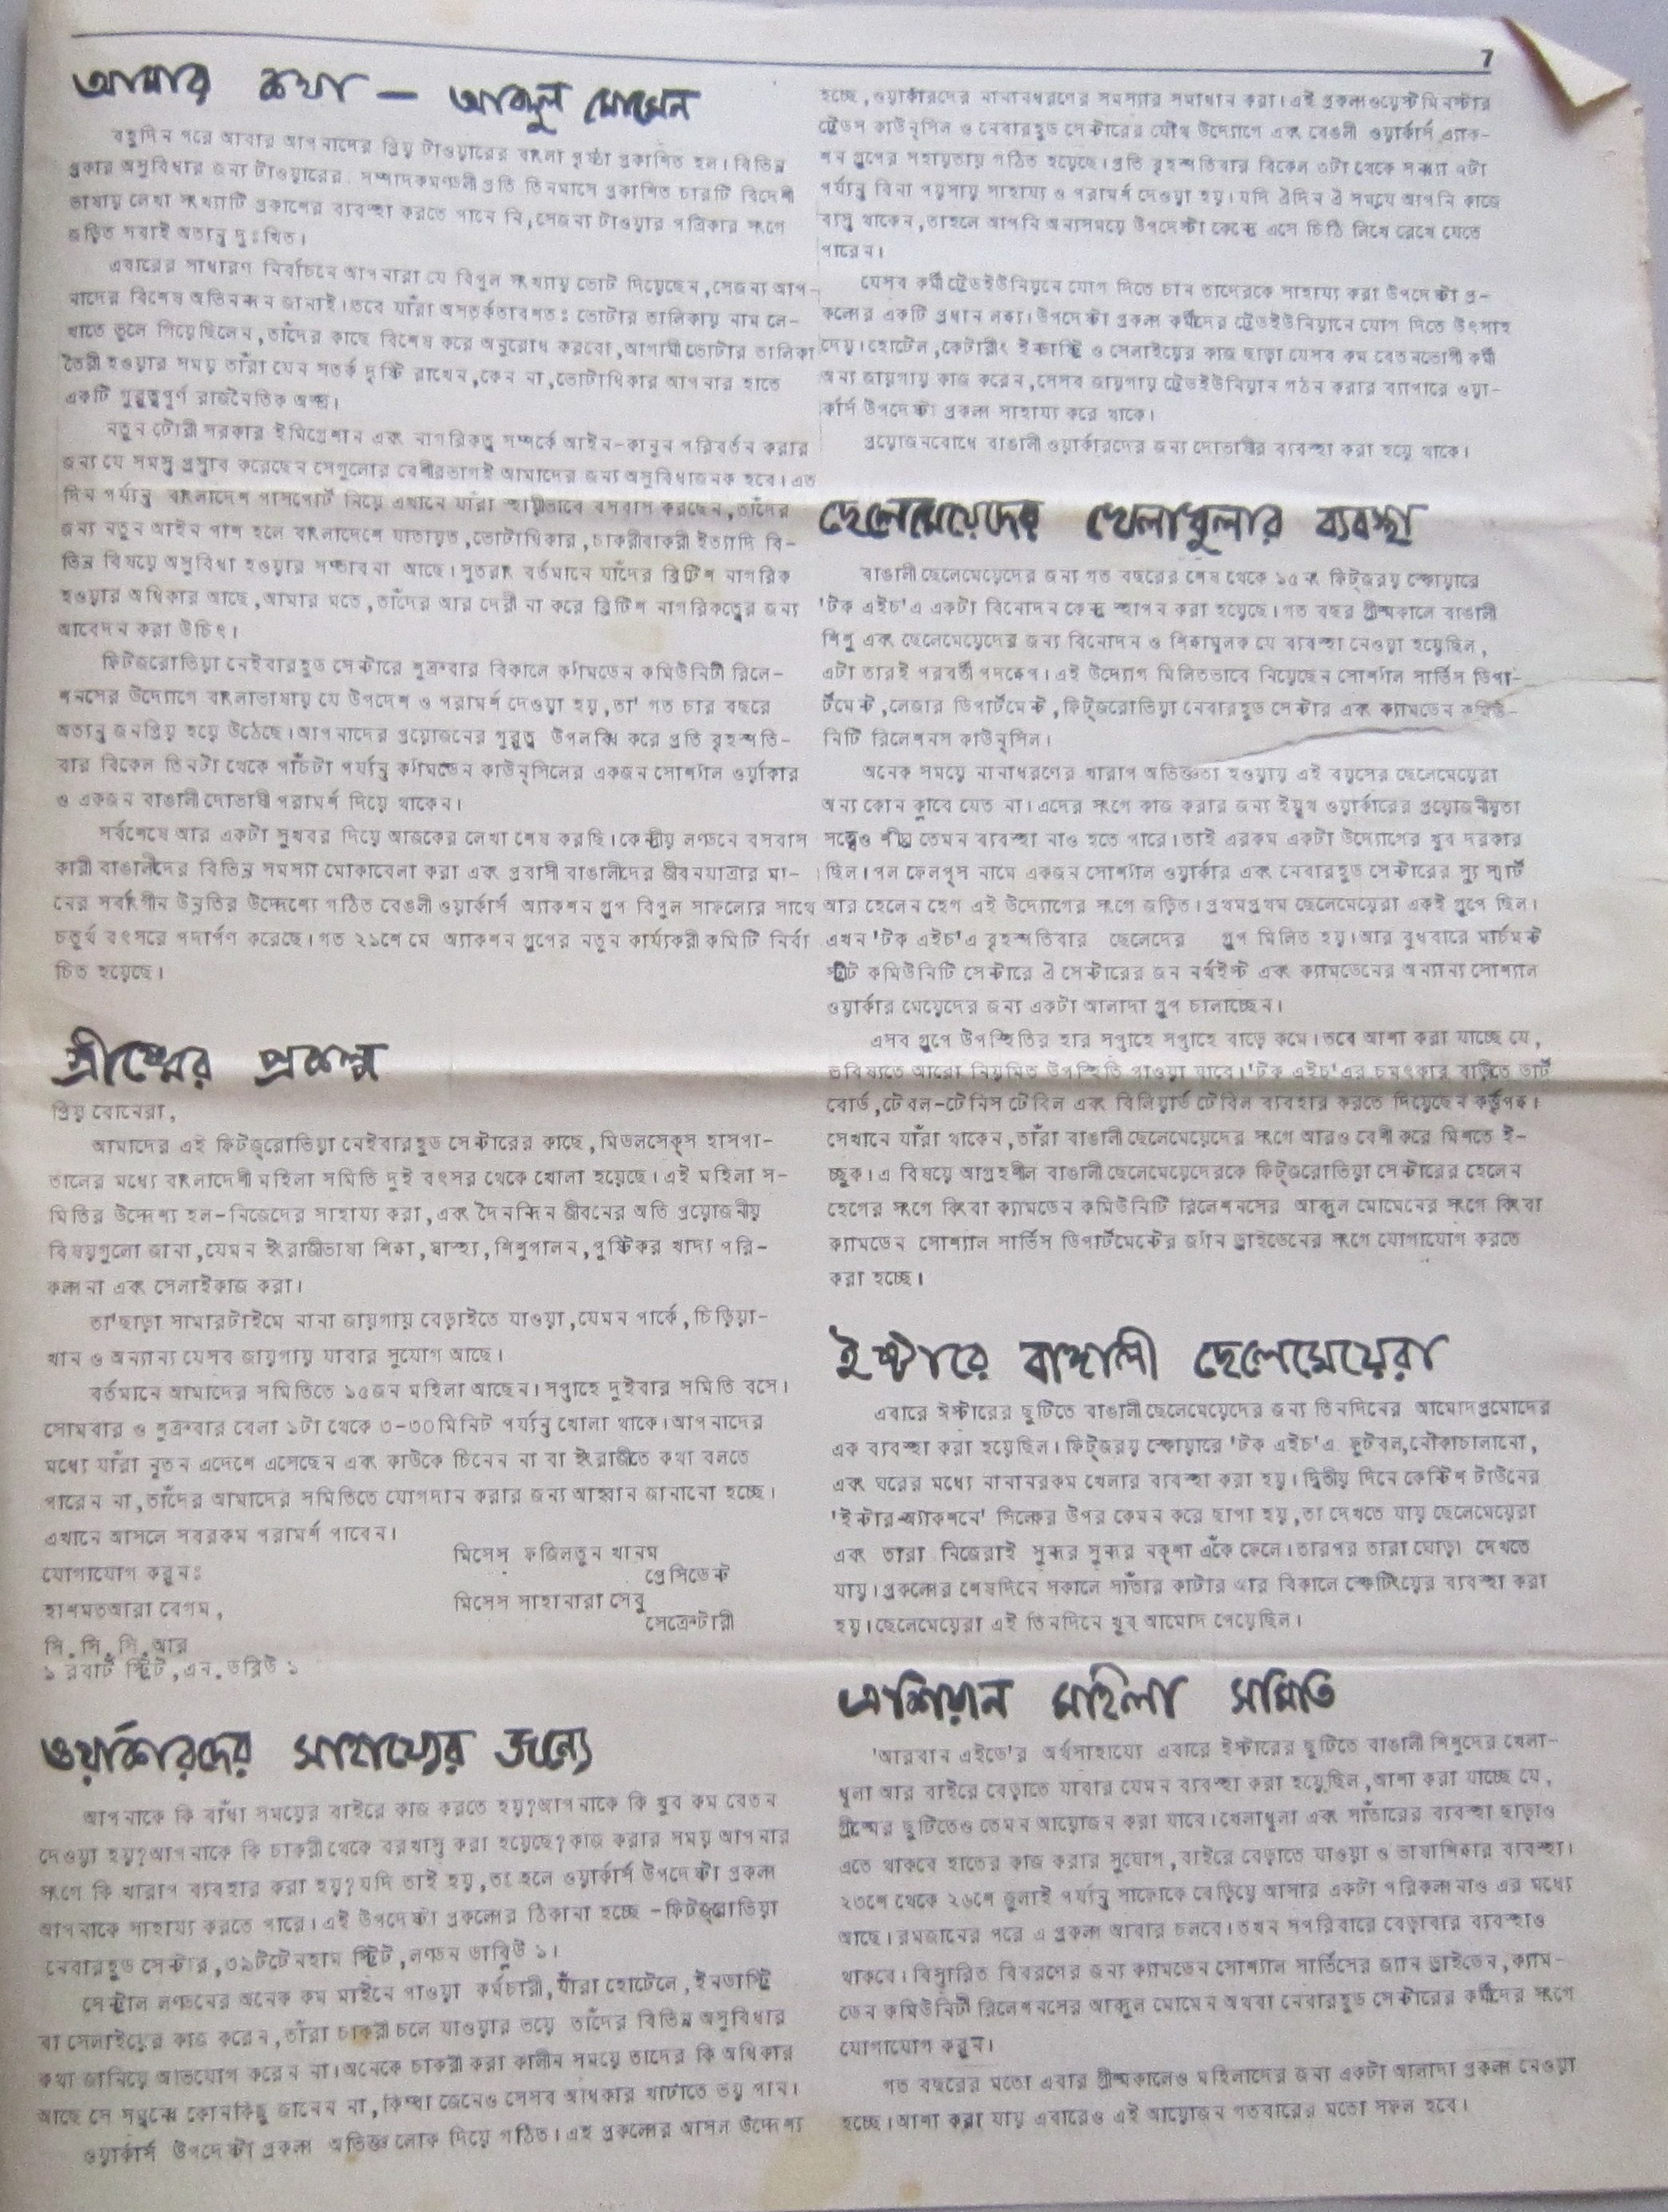 7
আমার কথা — আব্দুল মোমেন
বহুদিন পরে আবার আপনাদের প্রিয় টাওয়ারের বাংলা পৃষ্ঠা প্রকাশিত হল। বিভিন্ন
প্রকার অসুবিধার জন্য টাওয়ারের সম্পাদকমণ্ডলী প্রতি তিনমাসে প্রকাশিত চারটি বিদেশী
ভাষায় লেখা সংখ্যাটি প্রকাশের ব্যবস্থা করতে পারে নি, সেজন্য টাওয়ার পত্রিকার সংগে
জড়িত সবাই অত্যন্ত দুঃখিত।
এবারের সাধারণ নির্বাচনে আপনারা যে বিপুল সংখ্যায় ভোট দিয়েছেন, সেজন্য আপ-
নাদের বিশেষ অভিনন্দন জানাই। তবে যাঁরা অসতর্কতাবশতঃ ভোটার তালিকায় নাম লে-
খাতে ভুলে গিয়েছিলেন, তাঁদের কাছে বিশেষ করে অনুরোধ করবো, আগামী ভোটার তালিকা
তৈরী হওয়ার সময় তাঁরা যেন সতর্ক দৃষ্টি রাখেন, কেন না, ভোটাধিকার আপনার হাতে
একটি গুরুত্বপূর্ণ রাজনৈতিক অস্ত্র।
নতুন টোরী সরকার ইমিগ্রেশান এবং নাগরিকত্ব সম্পর্কে আইন-কানুন পরিবর্তন করার
জন্য যে সমস্ত প্রস্তাব করেছেন সেগুলোর বেশীরভাগই আমাদের জন্য অসুবিধাজনক হবে। এত
দিন পর্যন্ত বাংলাদেশ পাসপোর্ট নিয়ে এখানে যাঁরা স্থায়ীভাবে বসবাস করছেন, তাঁদের
জন্য নতুন আইন পাশ হলে বাংলাদেশে যাতায়ত, ভোটাধিকার, চাকরীবাকরী ইত্যাদি বি-
ভিন্ন বিষয়ে অসুবিধা হওয়ার সম্ভাবনা আছে। সুতরাং বর্তমানে যাঁদের ব্রিটিশ নাগরিক
হওয়ার অধিকার আছে, আমার মতে, তাঁদের আর দেরী না করে ব্রিটিশ নাগরিকত্বের জন্য
আবেদন করা উচিৎ।
ফিটজরোভিয়া নেইবারহুড সেন্টারে শুক্রবার বিকালে ক্যামডেন কমিউনিটী রিলে-
শনসের উদ্যোগে বাংলাভাষায় যে উপদেশ ও পরামর্শ দেওয়া হয়, তা' গত চার বছরে
অত্যন্ত জনপ্রিয় হয়ে উঠেছে। আপনাদের প্রয়োজনের গুরুত্ব উপলব্ধি করে প্রতি বৃহস্পতি-
বার বিকেল তিনটা থেকে পাঁচটা পর্যন্ত ক্যামডেন কাউন্সিলের একজন সোশ্যাল ওয়ার্কার
ও একজন বাঙালী দোভাষী পরামর্শ দিয়ে থাকেন।
সর্বশেষে আর একটা সুখবর দিয়ে আজকের লেখা শেষ করছি। কেন্দ্রীয় লণ্ডনে বসবাস
কারী বাঙালীদের বিভিন্ন সমস্যা মোকাবেলা করা এবং প্রবাসী বাঙালীদের জীবনযাত্রার মা-
নের সর্বাংগীন উন্নতির উদ্দেশ্যে গঠিত বেঙলী ওয়ার্কার্স অ্যাকশন গ্রুপ বিপুল সাফল্যের সাথে
চতুর্থ বৎসরে পদার্পণ করেছে। গত ২১শে মে অ্যাকশন গ্রুপের নতুন কার্য্যকরী কমিটি নির্বা
চিত হয়েছে।
গ্রীষ্মের প্রকল্প
প্রিয় বোনেরা,
আমাদের এই ফিটজ্‌রোভিয়া নেইবারহুড সেন্টারের কাছে, মিডলসেক্স হাসপা-
তালের মধ্যে বাংলাদেশী মহিলা সমিতি দুই বৎসর থেকে খোলা হয়েছে। এই মহিলা স-
মিতির উদ্দেশ্য হল-নিজেদের সাহায্য করা, এবং দৈনন্দিন জীবনের অতি প্রয়োজনীয়
বিষয়গুলো জানা, যেমন ইংরাজীভাষা শিক্ষা, স্বাস্থ্য, শিশুপালন, পুষ্টিকর খাদ্য পরি-
কল্পনা এবং সেলাইকাজ করা।
তা'ছাড়া সামারটাইমে নানা জায়গায় বেড়াইতে যাওয়া, যেমন পার্কে, চিড়িয়া-
খান ও অন্যান্য যেসব জায়গায় যাবার সুযোগ আছে।
বর্তমানে আমাদের সমিতিতে ১৫জন মহিলা আছেন। সপ্তাহে দুইবার সমিতি বসে।
সোমবার ও শুক্রবার বেলা ১টা থেকে ৩-৩০মিনিট পর্য্যন্ত খোলা থাকে। আপনাদের
মধ্যে যাঁরা নুতন এদেশে এসেছেন এবং কাউকে চিনেন না বা ইংরাজীতে কথা বলতে
পারেন না, তাঁদের আমাদের সমিতিতে যোগদান করার জন্য আহ্বান জানানো হচ্ছে।
এখানে আসলে সবরকম পরামর্শ পাবেন।
যোগাযোগ করুনঃ
হাশমতআরা বেগম,
সি.সি.সি.আর
১ রবার্ট স্ট্রিট, এন.ডব্লিউ ১
মিসেস ফজিলতুন খানম
প্রেসিডেন্ট
মিসেস সাহানারা সেবু
সেক্রেটারী
ওয়ার্কারদের সাহায্যের জন্যে
আপনাকে কি বাঁধা সময়ের বাইরে কাজ করতে হয়? আপনাকে কি খুব কম বেতন
দেওয়া হয়? আপনাকে কি চাকরী থেকে বরখাস্ত করা হয়েছে? কাজ করার সময় আপনার
সংগে কি খারাপ ব্যবহার করা হয়? যদি তাই হয়, তা হলে ওয়ার্কার্স উপদেষ্টা প্রকল্প
আপনাকে সাহায্য করতে পারে। এই উপদেষ্টা প্রকল্পের ঠিকানা হচ্ছে -ফিটজ্‌রোভিয়া
নেবারহুড সেন্টার, ৩৯টটেনহাম স্ট্রিট, লণ্ডন ডাব্লিউ ১।
সেন্ট্রাল লণ্ডনের অনেক কম মাইনে পাওয়া কর্মচারী, যাঁরা হোটেলে, ইনডাস্ট্রি
বা সেলাইয়ের কাজ করেন, তাঁরা চাকরী চলে যাওয়ার ভয়ে তাঁদের বিভিন্ন অসুবিধার
কথা জানিয়ে অভিযোগ করেন না। অনেকে চাকরী করা কালীন সময়ে তাদের কি অধিকার
আছে সে সম্বন্ধে কোনকিছু জানেন না, কিম্বা জেনেও সেসব অধিকার খাটাতে ভয় পান।
ওয়ার্কার্স উপদেষ্টা প্রকল্প অভিজ্ঞ লোক দিয়ে গঠিত। এই প্রকল্পের আসল উদ্দেশ্য
হচ্ছে, ওয়ার্কারদের নানানধরণের সমস্যার সমাধান করা। এই প্রকল্প ওয়েস্টমিনস্টার
ট্রেডস কাউন্সিল ও নেবারহুড সেন্টারের যৌথ উদ্যোগে এবং বেঙলী ওয়ার্কার্স এ্যাক-
শন গ্রুপের সহায়তায় গঠিত হয়েছে। প্রতি বৃহস্পতিবার বিকেল ৩টা থেকে সন্ধ্যা ৭টা
পর্য্যন্ত বিনা পয়সায় সাহায্য ও পরামর্শ দেওয়া হয়। যদি ঐদিন ঐ সময়ে আপনি কাজে
ব্যস্ত থাকেন, তাহলে আপনি অন্যসময়ে উপদেষ্টা কেন্দ্রে এসে চিঠি লিখে রেখে যেতে
পারেন।
যেসব কর্মী ট্রেডইউনিয়নে যোগ দিতে চান তাদেরকে সাহায্য করা উপদেষ্টা প্র-
কল্পের একটি প্রধান লক্ষ্য। উপদেষ্টা প্রকল্প কর্মীদের ট্রেডইউনিয়ানে যোগ দিতে উৎসাহ
দেয়। হোটেল, কেটারীং ইন্ডাস্ট্রি ও সেলাইয়ের কাজ ছাড়া যেসব কম বেতনভোগী কর্মী
অন্য জায়গায় কাজ করেন, সেসব জায়গায় ট্রেডইউনিয়ান গঠন করার ব্যাপারে ওয়া-
র্কার্স উপদেষ্টা প্রকল্প সাহায্য করে থাকে।
প্রয়োজনবোধে বাঙালী ওয়ার্কারদের জন্য দোভাষীর ব্যবস্থা করা হয়ে থাকে।
ছেলেমেয়েদের খেলাধুলার ব্যবস্থা
বাঙালী ছেলেমেয়েদের জন্য গত বছরের শেষ থেকে ১৫নং ফিট্জরয় স্কোয়ারে
'টক এইচ'এ একটা বিনোদন কেন্দ্র স্থাপন করা হয়েছে। গত বছর গ্রীষ্মকালে বাঙালী
শিশু এবং ছেলেমেয়েদের জন্য বিনোদন ও শিক্ষামূলক যে ব্যবস্থা নেওয়া হয়েছিল,
এটা তারই পরবর্তী পদক্ষেপ। এই উদ্যোগ মিলিতভাবে নিয়েছেন সোশ্যাল সার্ভিস ডিপা-
র্টমেন্ট, লেজার ডিপার্টমেন্ট, ফিট্জরোভিয়া নেবারহুড সেন্টার এবং ক্যামডেন কমিউ-
নিটি রিলেশনস কাউন্সিল।
অনেক সময়ে নানাধরণের খারাপ অভিজ্ঞতা হওয়ায় এই বয়সের ছেলেমেয়েরা
অন্য কোন ক্লাবে যেত না। এদের সংগে কাজ করার জন্য ইয়ুথ ওয়ার্কারের প্রয়োজনীয়তা
সত্ত্বেও শীঘ্র তেমন ব্যবস্থা নাও হতে পারে। তাই এরকম একটা উদ্যোগের খুব দরকার
ছিল। পল ফেলপ্স নামে একজন সোশ্যাল ওয়ার্কার এবং নেবারহুড সেন্টারের স্যু স্মার্ট
আর হেলেন হেগ এই উদ্যোগের সংগে জড়িত। প্রথমপ্রথম ছেলেমেয়েরা একই গ্রুপে ছিল।
এখন 'টক এইচ'এ বৃহস্পতিবার ছেলেদের গ্রুপ মিলিত হয়। আর বুধবারে মার্চমন্ট
স্ট্রীট কমিউনিটি সেন্টারে ঐ সেন্টারের জন নর্থইস্ট এবং ক্যামডেনের অন্যান্য সোশ্যাল
ওয়ার্কার মেয়েদের জন্য একটা আলাদা গ্রুপ চালাচ্ছেন।
এসব গ্রুপে উপস্থিতির হার সপ্তাহে সপ্তাহে বাড়ে কমে। তবে আশা করা যাচ্ছে যে,
ভবিষ্যতে আরো নিয়মিত উপস্থিতি পাওয়া যাবে। 'টক এইচ'এর চমৎকার বাড়িতে ডার্ট
বোর্ড, টেবল-টেনিস টেবিল এবং বিলিয়ার্ড টেবিল ব্যবহার করতে দিয়েছেন কর্তৃপক্ষ।
সেখানে যাঁরা থাকেন, তাঁরা বাঙালী ছেলেমেয়েদের সংগে আরও বেশী করে মিশতে ই-
চ্ছুক। এ বিষয়ে আগ্রহশীল বাঙালী ছেলেমেয়েদেরকে ফিট্জরোভিয়া সেন্টারের হেলেন
হেগের সংগে কিংবা ক্যামডেন কমিউনিটি রিলেশনসের আব্দুল মোমেনের সংগে কিংবা
ক্যামডেন সোশ্যাল সার্ভিস ডিপার্টমেন্টের জ্যান ড্রাইডেনের সংগে যোগাযোগ করতে
করা হচ্ছে।
ইস্টারে বাঙ্গালী ছেলেমেয়েরা
এবারে ঈস্টারের ছুটিতে বাঙালী ছেলেমেয়েদের জন্য তিনদিনের আমোদপ্রমোদের
এক ব্যবস্থা করা হয়েছিল। ফিট্জরয় স্কোয়ারে 'টক এইচ'এ ফুটবল, নৌকাচালানো,
এবং ঘরের মধ্যে নানানরকম খেলার ব্যবস্থা করা হয়। দ্বিতীয় দিনে কেন্টিশ টাউনের
'ইন্টার-অ্যাকশনে' সিল্কের উপর কেমন করে ছাপা হয়, তা দেখতে যায় ছেলেমেয়েরা
এবং তারা নিজেরাই সুন্দর সুন্দর নক্শা এঁকে ফেলে। তারপর তারা ঘোড়া দেখতে
যায়। প্রকল্পের শেষদিনে সকালে সাঁতার কাটার আর বিকালে স্কেটিংয়ের ব্যবস্থা করা
হয়। ছেলেমেয়েরা এই তিনদিনে খুব আমোদ পেয়েছিল।
এশিয়ান মহিলা সমিতি
'আরবান এইডে'র অর্থসাহায্যে এবারে ইস্টারের ছুটিতে বাঙালী শিশুদের খেলা-
ধূলা আর বাইরে বেড়াতে যাবার যেমন ব্যবস্থা করা হয়েছিল, আশা করা যাচ্ছে যে,
গ্রীষ্মের ছুটিতেও তেমন আয়োজন করা যাবে। খেলাধূলা এবং সাঁতারের ব্যবস্থা ছাড়াও
এতে থাকবে হাতের কাজ করার সুযোগ, বাইরে বেড়াতে যাওয়া ও ভাষাশিক্ষার ব্যবস্থা।
২৩শে থেকে ২৬শে জুলাই পর্য্যন্ত সাফোকে বেড়িয়ে আসার একটা পরিকল্পনাও এর মধ্যে
আছে। রমজানের পরে এ প্রকল্প আবার চলবে। তখন সপরিবারে বেড়াবার ব্যবস্থাও
থাকবে। বিস্তারিত বিবরণের জন্য ক্যামডেন সোশ্যাল সার্ভিসের জ্যান ড্রাইডেন, ক্যাম-
ডেন কমিউনিটী রিলেশনসের আব্দুল মোমেন অথবা নেবারহুড সেন্টারের কর্মীদের সংগে
যোগাযোগ করুন।
গত বছরের মতো এবার গ্রীষ্মকালেও মহিলাদের জন্য একটা আলাদা প্রকল্প নেওয়া
হচ্ছে। আশা করা যায় এবারেও এই আয়োজন গতবারের মতো সফল হবে।